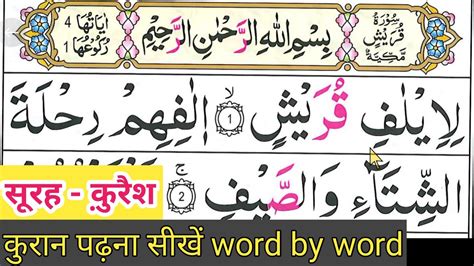 اٰیَاتُهَا 4
رُكُوْعُهَا 1
بِسْمِ اللهِ الرَّحْمٰنِ الرَّحِیْمِ
سُوْرَةُ
قُرَیْشٍ
مَكِّیَّةٌ
لِاِیْلٰفِ قُرَیْشٍ ۙ 1 اٖلٰفِهِمْ رِحْلَةَ
الشِّتَآءِ وَالصَّیْفِ ۚ 2
सूरह - क़ुरैश
कुरान पढ़ना सीखें word by word